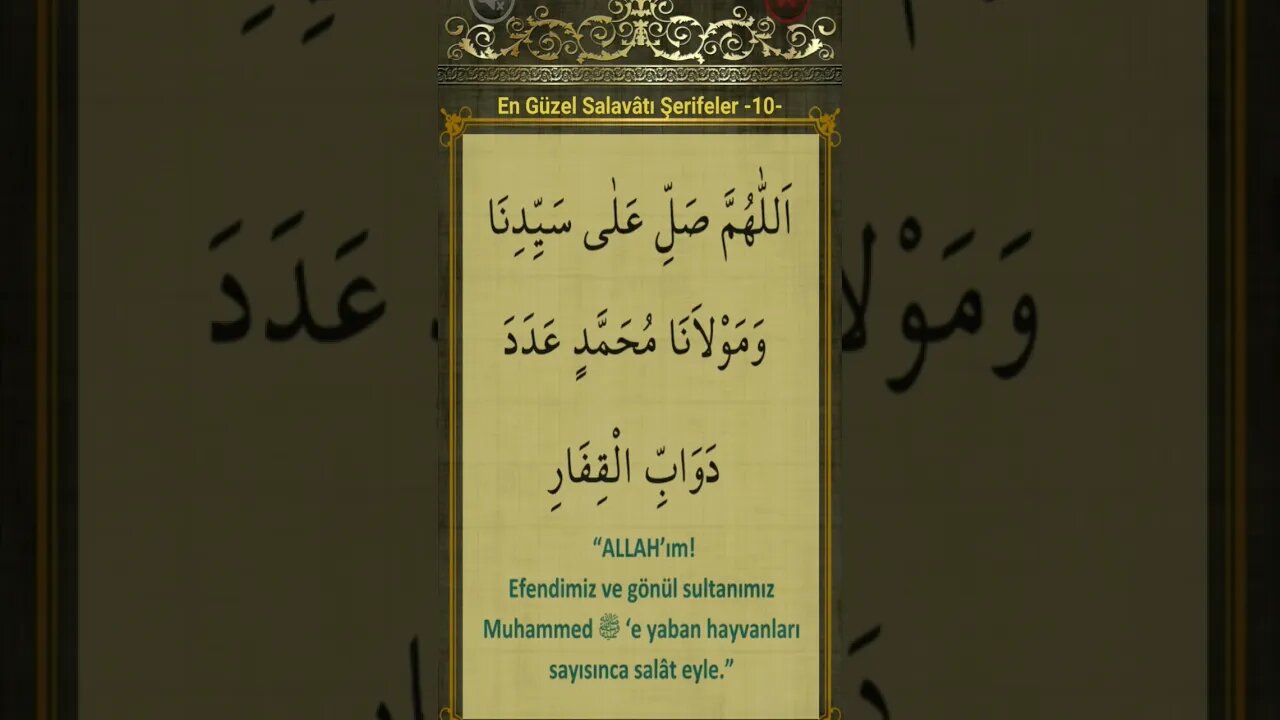 En Güzel Salavâtı Şerifeler -10-
اَللّٰهُمَّ صَلِّ عَلٰى سَيِّدِنَا
وَمَوْلاَنَا مُحَمَّدٍ عَدَدَ
دَوَابِّ الْقِفَارِ
“ALLAH’ım!
Efendimiz ve gönül sultanımız
Muhammed ﷺ ‘e yaban hayvanları
sayısınca salât eyle.”